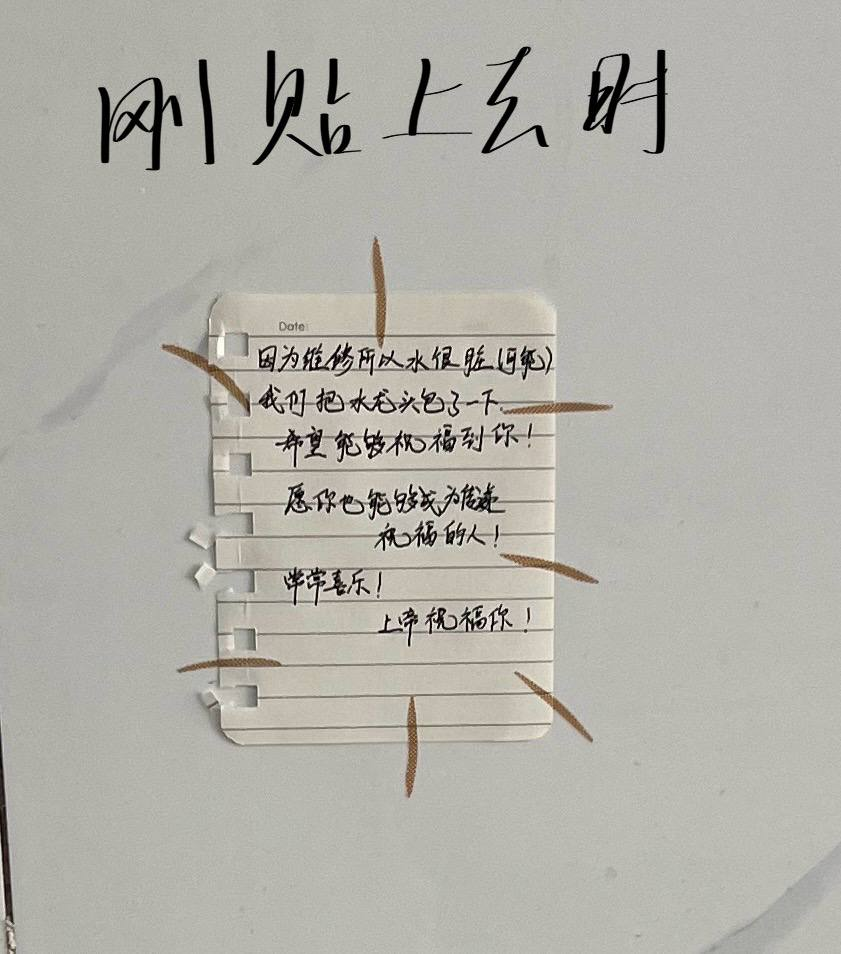 刚贴上去时
Date:
因为维修所以水很脏(可能)
我们把水龙头包了一下.
希望能够祝福到你!
愿你也能够成为传递
祝福的人!
常常喜乐!
上帝祝福你!